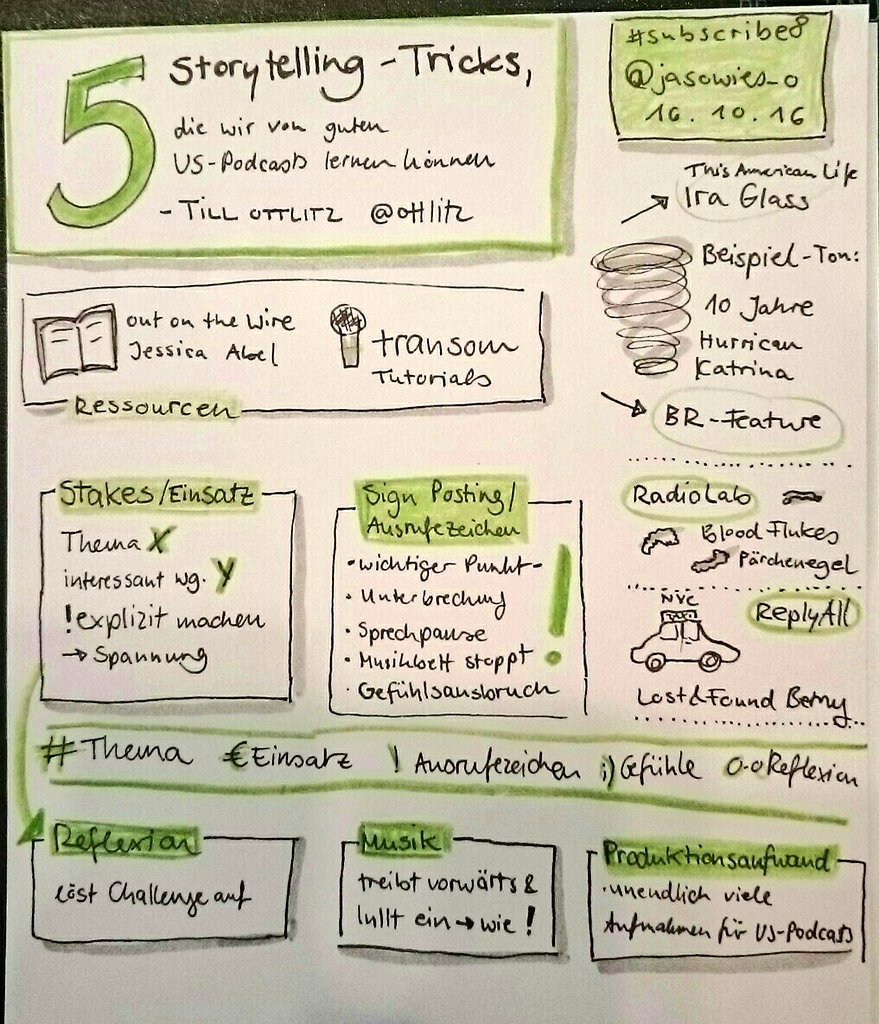 5 Storytelling-Tricks,
die wir von guten
US-Podcasts lernen können
- TILL OTTLITZ @ottlitz
#subscribe8
@jasowies_o
16.10.16
This American Life
Ira Glass
Beispiel-Ton:
10 Jahre
Hurrican
Katrina
BR-Feature
out on the Wire
Jessica Abel
transom
Tutorials
Ressourcen
RadioLab
Blood Flukes
Pärchenegel
NYC
TAXI
ReplyAll
Lost & Found
Stakes/Einsatz
Thema X
interessant wg. Y
! explizit machen
→ Spannung
Sign Posting/
Ausrufezeichen
• wichtiger Punkt -
• Unterbrechung
• Sprechpause
• Musikbett stoppt
• Gefühlsausbruch
!
# Thema € Einsatz ! Ausrufezeichen ;) Gefühle O-O Reflexion
Reflexion
löst Challenge auf
Musik
treibt vorwärts &
lullt ein → wie !
Produktionsaufwand
• unendlich viele
Aufnahmen für US-Podcasts